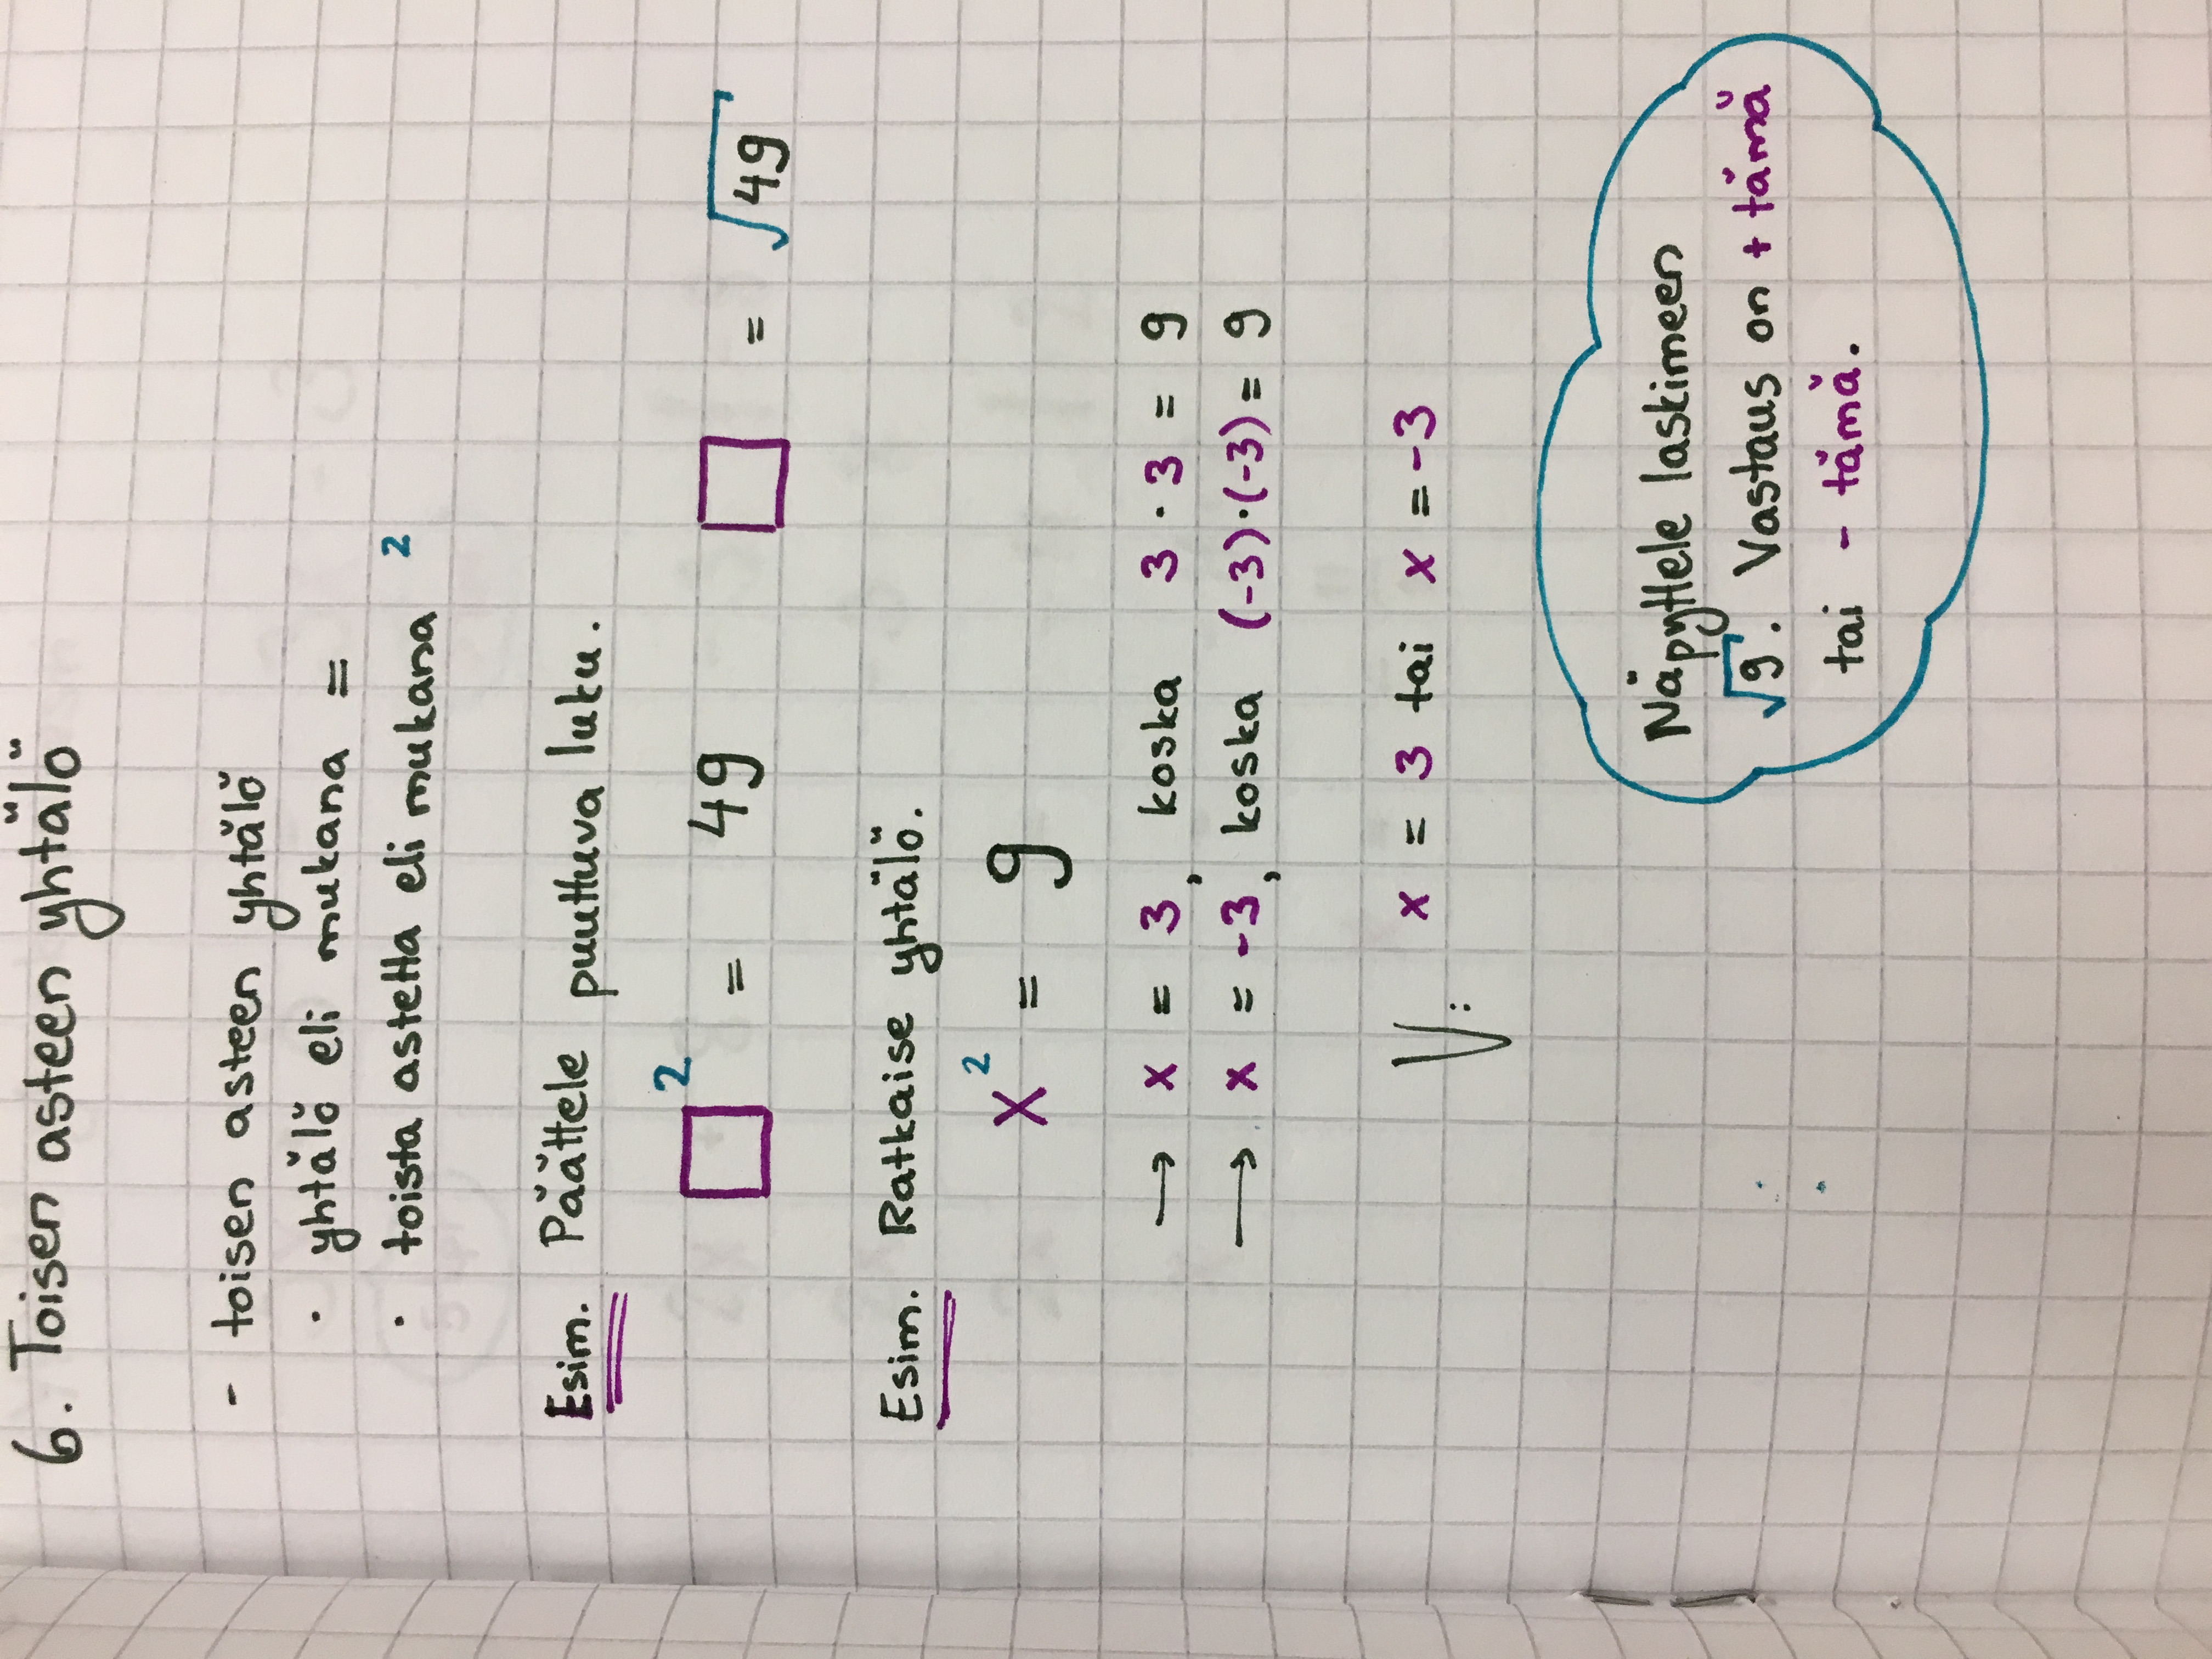 6. Toisen asteen yhtälö
- toisen asteen yhtälö
· yhtälö eli mukana =
· toista astetta eli mukana ²
Esim. Päättele puuttuva luku.
□² = 49 □ = √49
Esim. Ratkaise yhtälö.
x² = 9
→ x = 3, koska 3 · 3 = 9
→ x = -3, koska (-3)·(-3) = 9
V: x = 3 tai x = -3
Näpyttele laskimeen
√9. Vastaus on + tämä
tai - tämä.